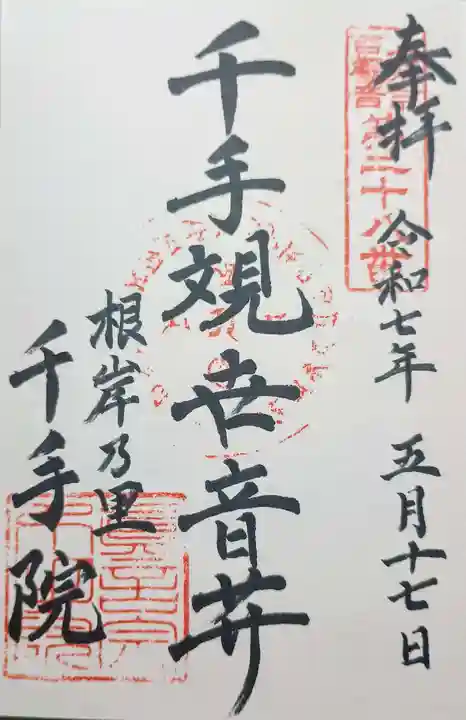 奉拝 令和七年 五月十七日
第二十八番
千手観世音菩薩
根岸乃里
千手院